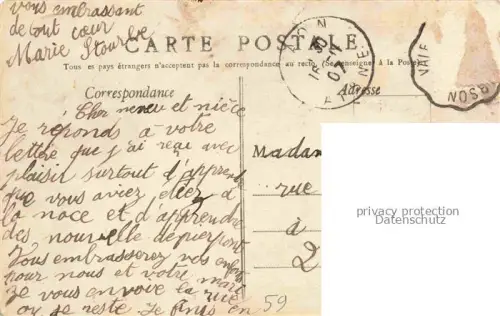 vous embrassant
de tout cœur
Marie
CARTE POSTALE
Tous les pays étrangers n'acceptent pas la correspondance au recto (Se renseigner à la Poste)
Correspondance
Adresse
Cher neveu et nièce
Je réponds à votre
lettre que j'ai reçu avec
plaisir surtout d'apprendre
que vous aviez étiez à
la noce et d'apprendre
des nouvelle de pierpont
Vous embrasserez vos enfants
pour nous et votre mari
Je vous envoye la rue
ou je reste Je finis en
59
Madam
rue
à
privacy protection
Datenschutz
07